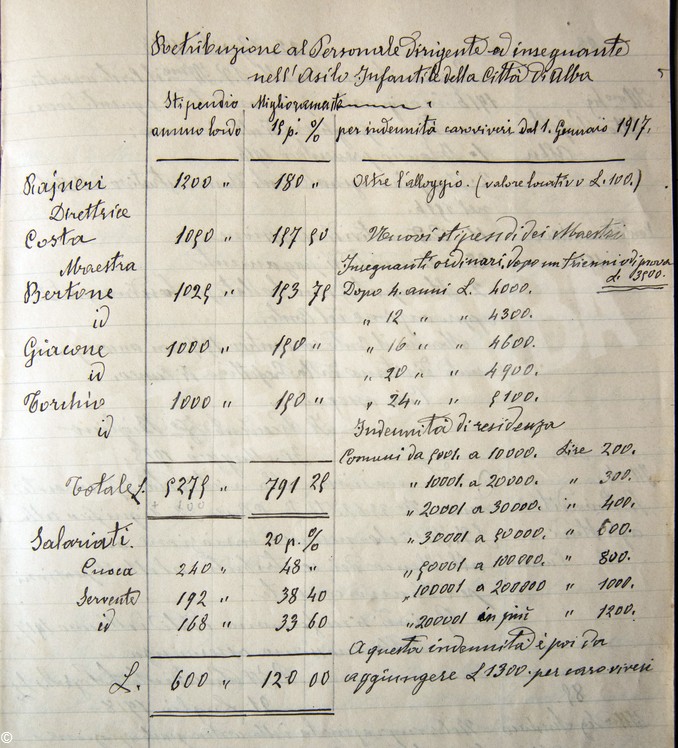 Retribuzione al Personale dirigente ed insegnante
nell'Asilo Infantile della Città di Alba
Stipendio Miglioramento
annuo lordo 15 p. % per indennità caroviveri dal 1. Gennaio 1917.
Rajneri 1200 " 180 " Oltre l'alloggio. (valore locativo L. 100.)
Direttrice
Costa 1050 " 157 50 Nuovi stipendi dei Maestri
Maestra Insegnanti ordinari, dopo un triennio di prova
L. 3500.
Bertone 1025 " 153 75 Dopo 4. anni L. 4000.
id " 12 " " 4300.
Giacone 1000 " 150 " " 16 " " 4600.
id " 20 " " 4900.
Torchio 1000 " 150 " " 24 " " 5100.
id Indennità di residenza
Comuni da 5001. a 10000. Lire 200.
Totale L. 5275 " 791 25 " 10001. a 20000. " 300.
+ 100 " 20001 a 30000. " 400.
Salariati. 20 p. % " 30001 a 50000. " 600.
Cuoca 240 " 48 " " 50001 a 100000. " 800.
Servente 192 " 38 40 " 100001 a 200000 " 1000.
id 168 " 33 60 " 200001 in più " 1200.
A questa indennità è poi da
L. 600 " 120 00 aggiungere L 1300. per caro viveri
©